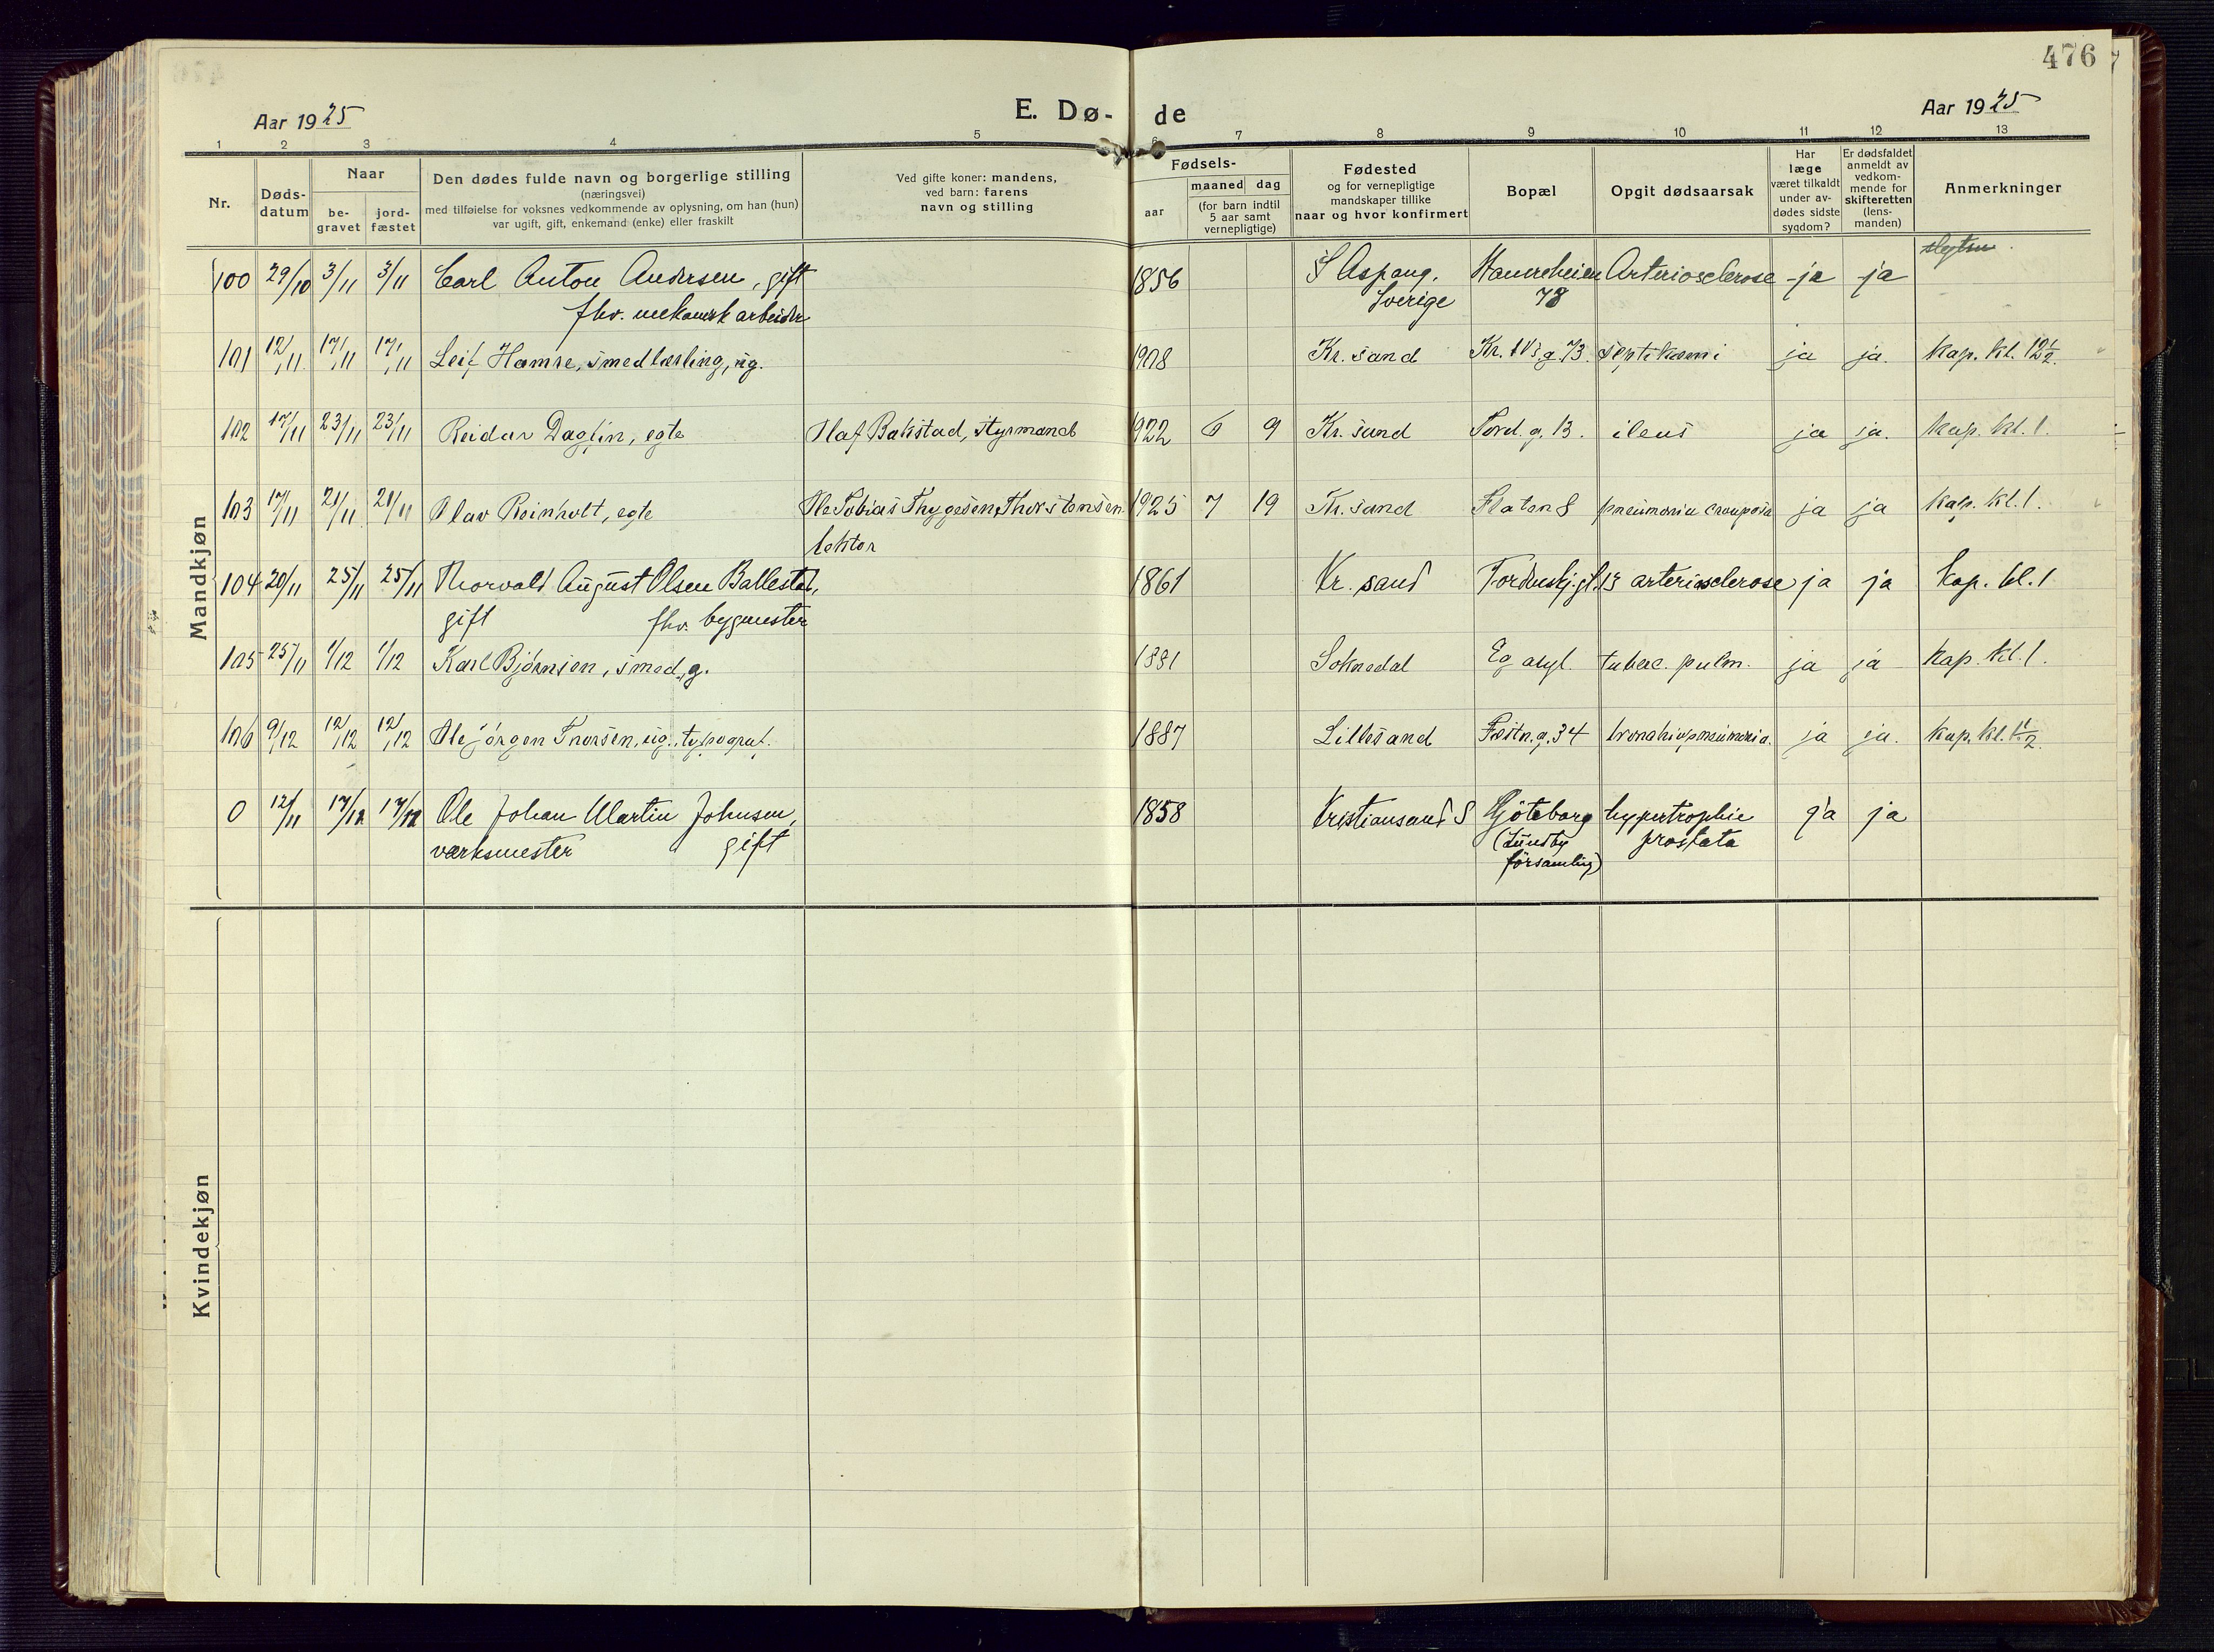 476
Aar 1925
E. Dø-
de
Aar 1925
1 2 3 4 5 6 7 8 9 10 11 12 13
Nr.
Døds-
datum
Naar
be-
gravet
jord-
fæstet
Den dødes fulde navn og borgerlige stilling
(næringsvei)
med tilføielse for voksnes vedkommende av oplysning, om han (hun)
var ugift, gift, enkemand (enke) eller fraskilt
Ved gifte koner: mandens,
ved barn: farens
navn og stilling
Fødsels-
aar
maaned dag
(for barn indtil
5 aar samt
vernepligtige)
Fødested
og for vernepligtige
mandskaper tillike
naar og hvor konfirmert
Bopæl
Opgit dødsaarsak
Har
læge
været tilkaldt
under av-
dødes sidste
sygdom?
Er dødsfaldet
anmeldt av
vedkom-
mende for
skifteretten
(lens-
manden)
Anmerkninger
Mandkjøn
100 29/10 3/11 3/11 Carl Anton Andersen, gift 1856 Aspang, 78 Arteriosclerose ja ja
fhv. mekanisk arbeider Sverige
101 12/11 17/11 17/11 Leif Hamre, smedlærling, ug. 1908 Kr. sand septikæmi ja ja. Kap. kl. 12 1/2.
102 17/11 23/11 23/11 Reidar Dagfin, egte Olaf Bakstad, styrmand 1922 6 9 Kr. sand Tord. g. 13. ileus ja ja. Kap. kl. 1.
103 17/11 21/11 21/11 Olav Reinholt, egte Ole Tobias Thygesen Thorstensen 1925 7 19 Kr. sand Flaten 8 pneumonia crouposa ja ja Kap. kl. 1.
lektor
104 20/11 25/11 25/11 Thorvald August Olsen Ballestad, 1861 Kr. sand Tordenskj. gt. 13 arteriosclerose ja ja Kap. kl. 1
gift fhv. bygmester
105 25/11 1/12 1/12 Karl Bjørnsen, smed, g. 1881 Soknedal Eg asyl. tuberc. pulm. ja ja Kap. kl. 1.
106 9/12 12/12 12/12 Ole Jørgen Thorsen, ug., typograf. 1887 Lillesand Festn. g. 34 bronchiopneumonia. ja ja. Kap. kl. 1 1/2.
0 12/11 17/12 17/12 Ole Johan Martin Johnsen, 1858 Kristiansand S Gjöteborg hypertrophie ja ja
værksmester gift (Lundby prostata
församling)
Kvindekjøn